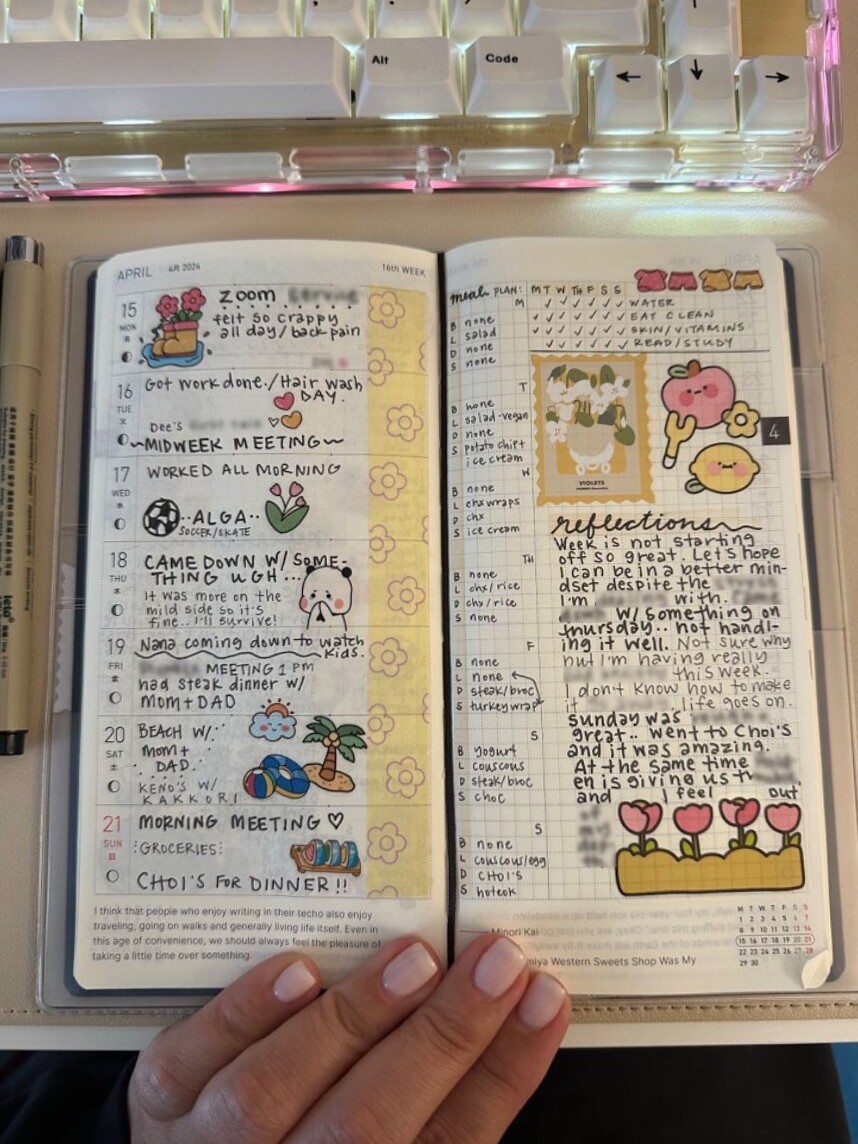 Alt
Code
←
↓
→
APRIL 4月 2024
16th WEEK
15
MON
月
ZOOM
felt so crappy
all day/back pain
16
TUE
火
Got work done./Hair wash
DAY.
Dee's
~MIDWEEK MEETING~
17
WED
水
WORKED ALL MORNING
..ALGA..
SOCCER/SKATE
18
THU
木
CAME DOWN W/ SOME-
THING UGH...
It was more on the
mild side so it's
fine.. I'll survive!
19
FRI
金
Nana coming down to watch
kids.
MEETING 1 PM
had steak dinner w/
MOM+DAD
20
SAT
土
BEACH W/
MOM+
DAD
KENO'S W/
KAKKORI
21
SUN
日
MORNING MEETING ♡
GROCERIES:
CHOI'S FOR DINNER !!
I think that people who enjoy writing in their techo also enjoy
traveling, going on walks and generally living life itself. Even in
this age of convenience, we should always feel the pleasure of
taking a little time over something.
meal PLAN:
M
B none
L salad
D none
S none
T
B none
L salad-vegan
D none
S potato chips
ice cream
W
B none
L chx wraps
D chx
S ice cream
TH
B none
L chx/rice
D chx/rice
S none
F
B none
L none
D steak/broc
S turkey wrap
S
B yogurt
L couscous
D steak/broc
S choc
S
B none
L couscous/egg
D CHOI'S
S hoteok
M T W TH F S S
✓ ✓ ✓ ✓ ✓ ✓ WATER
✓ ✓ ✓ ✓ ✓ ✓ ✓ EAT CLEAN
✓ ✓ ✓ ✓ ✓ ✓ ✓ SKIN/VITAMINS
✓ ✓ ✓ ✓ ✓ ✓ READ/STUDY
VIOLETS
4
reflections
Week is not starting
off so great. Let's hope
I can be in a better min-
dset despite the
I'm with.
W/ something on
thursday.. not handl-
ing it well. Not sure why
but I'm having really
this week.
I don't know how to make
it life goes on.
sunday was
great.. went to Choi's
and it was amazing.
At the same time
en is giving us
and I feel out
Minori Kai
miya Western Sweets Shop Was My
M T W T F S S
1 2 3 4 5 6 7
8 9 10 11 12 13 14
15 16 17 18 19 20 21
22 23 24 25 26 27 28
29 30